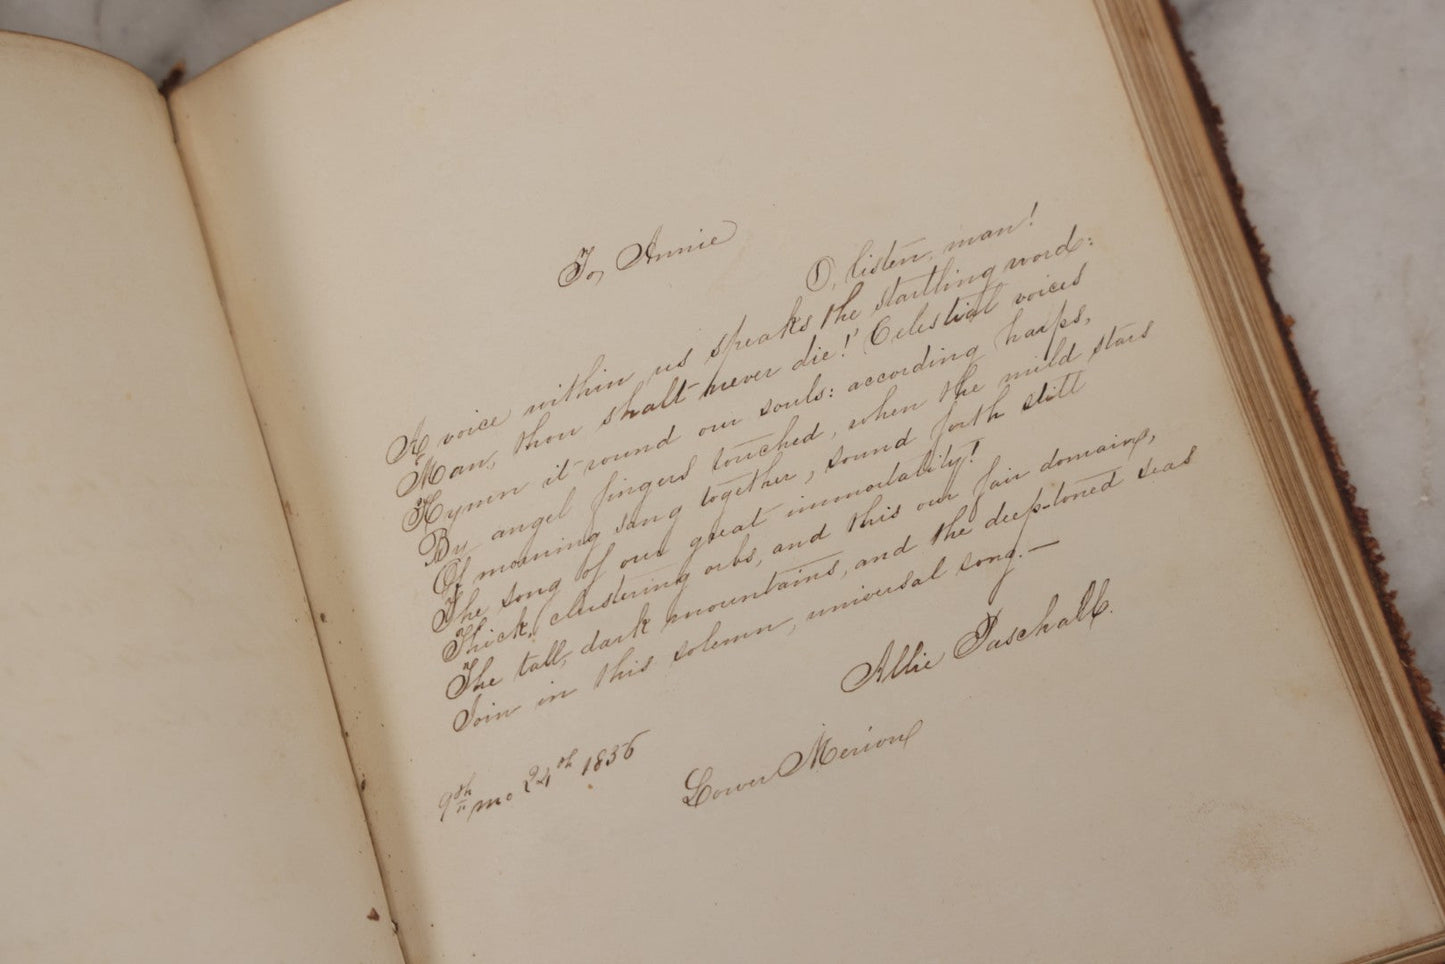 To, Annie
O, listen, man!
A voice within us speaks the startling word:
Man, thou shalt never die!" Celestial voices
Hymn it round our souls: according harps,
By angel fingers touched, when the mild stars
Of morning sang together, sound forth still
The song of our great immortality!
Thick, clustering orbs, and this our fair domain,
The tall, dark mountains, and the deep-toned seas
Join in this solemn, universal song.—
Allie Paschall.
Lower Merion
9th mo 24th 1836